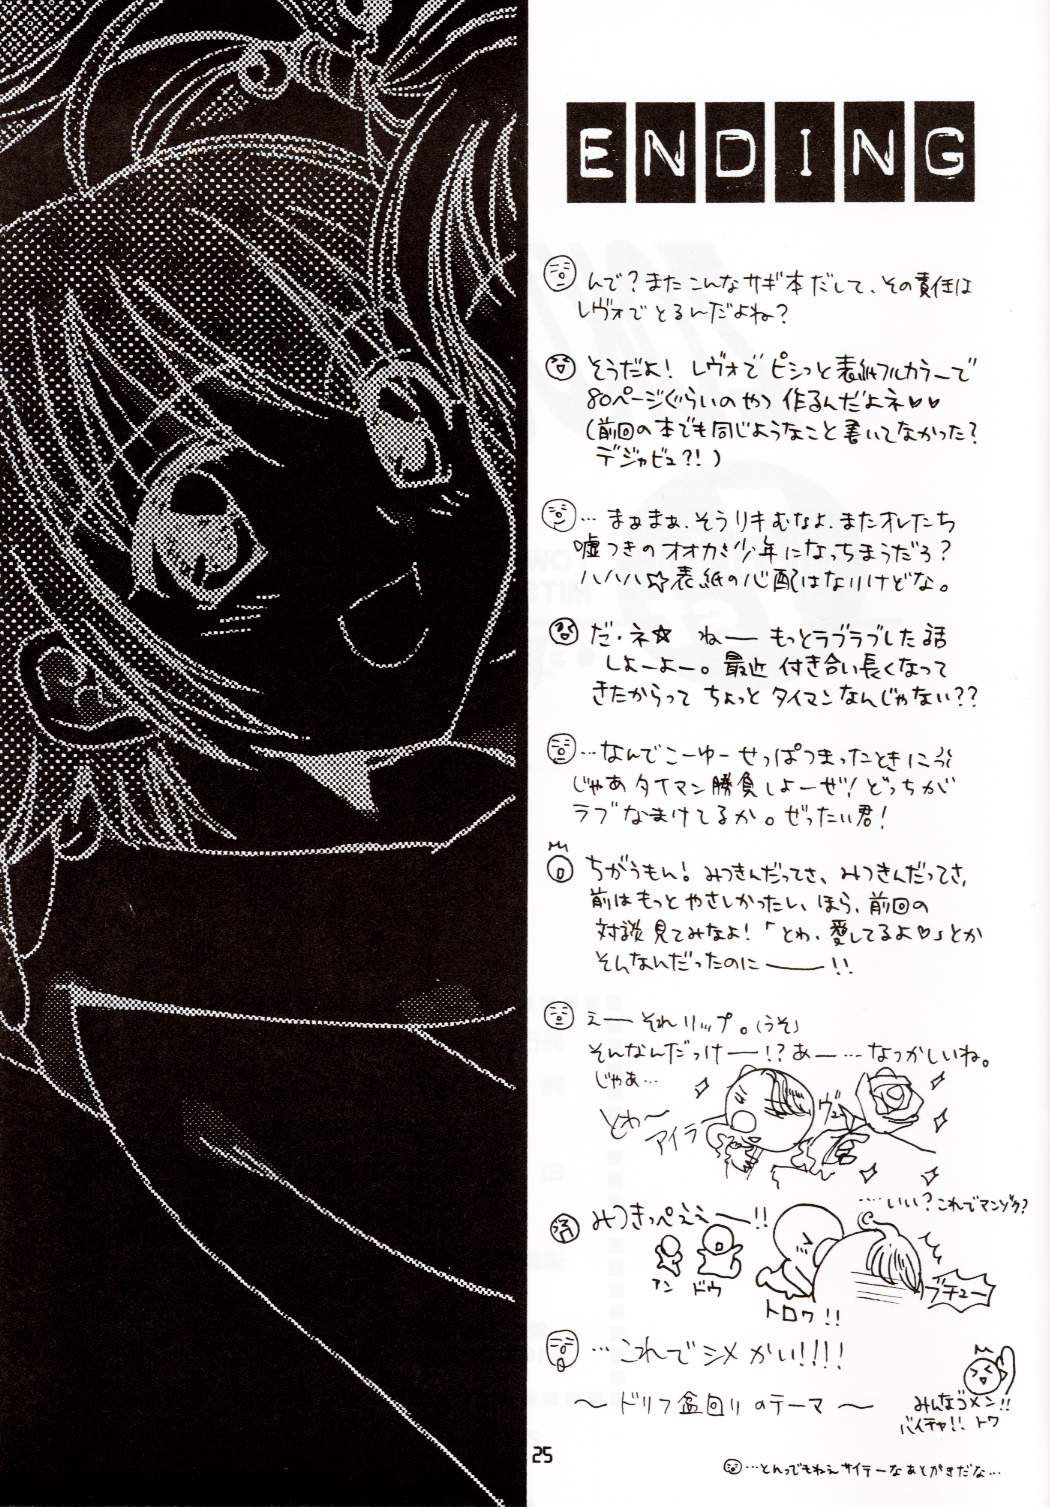 ENDING
んで?またこんなサギ本だして、その責任は
レヴォでとるんだよね?
そうだよ! レヴォで ピシっと表紙フルカラーで
80ページぐらいのやつ作るんだよネ♡♡
(前回の本でも同じようなこと書いてなかった?
デジャビュ?!)
…まぁまぁ、そうリキむなよ、またオレたち
嘘つきのオオカミ少年になっちまうだろ?
ハハハ☆表紙の心配はないけどな。
だ・ネ☆ ねー もっとラブラブした話
しよーよー。最近 付き合い長くなって
きたからって ちょっと タイマンなんじゃない??
…なんでこーゆーせっぱつまったときに
じゃあタイマン勝負しよーぜ!どっちが
ラブなまけてるか。ぜったい君!
ちがうもん!みつきんだってさ、みつきんだってさ、
前はもっとやさしかったし、ほら、前回の
対談見てみなよ!「とわ、愛してるよ♡」とか
そんなんだったのに――!!
えー それリップ。(うそ)
そんなんだっけー!?あー…なつかしいね。
じゃあ…
とわ〜
アイラ
ヴュ
……いい?これでマンゾク?
みつきっぺええー!!
アン ドウ
トロワ!!
ブチュー
…これでシメかい!!!!
〜ドリフ盆回りのテーマ〜
みんなゴメン!!
バイチャ!! トワ
25
…とんでもねえサイテーなあとがきだな…